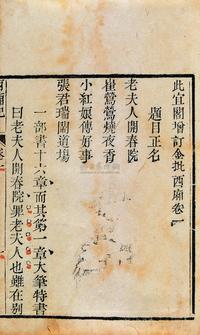 此宜閣增訂金批西廂卷一
題目正名
老夫人開春院
崔鶯鶯燒夜香
小紅娘傳好事
張君瑞鬧道場
一部書十六章而其第一章大筆特書
曰老夫人開春院罪老夫人也雖在別